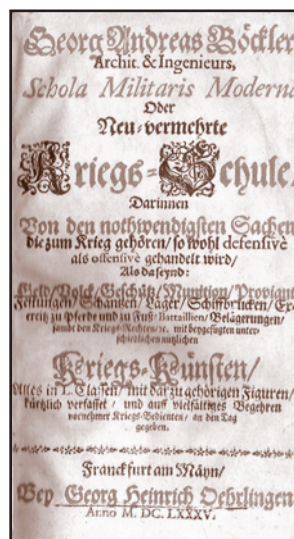 Georg Andreas Böckler
Archit. & Ingenieurs,
Schola Militaris Moderna
Oder
Neu-vermehrte
Kriegs-Schule/
Darinnen
Von den nothwendigsten Sachen
die zum Krieg gehören/ so wohl defensivè
als offensivè gehandelt wird/
Als da seynd:
Geld/ Volck/ Geschütz/ Munition/ Proviant
Festungen/ Schantzen/ Läger/ Schiffbrücken/ Ex-
ercitz zu Pferde und zu Fuß/ Battaillien/ Belägerungen/
sambt den Kriegs-Rechten/ ꝛc. mit beygefügten unter-
schiedlichen nutzlichen
Kriegs-Künsten/
Alles in L. Classen/ mit darzu gehörigen Figuren/
kürtzlich verfasset/ und auff vielfältiges Begehren
vornehmer Kriegs-Bedienten/ an den Tag
gegeben.
Franckfurt am Mäyn/
Bey Georg Heinrich Oehrlingen
Anno M. DC. LXXXV.